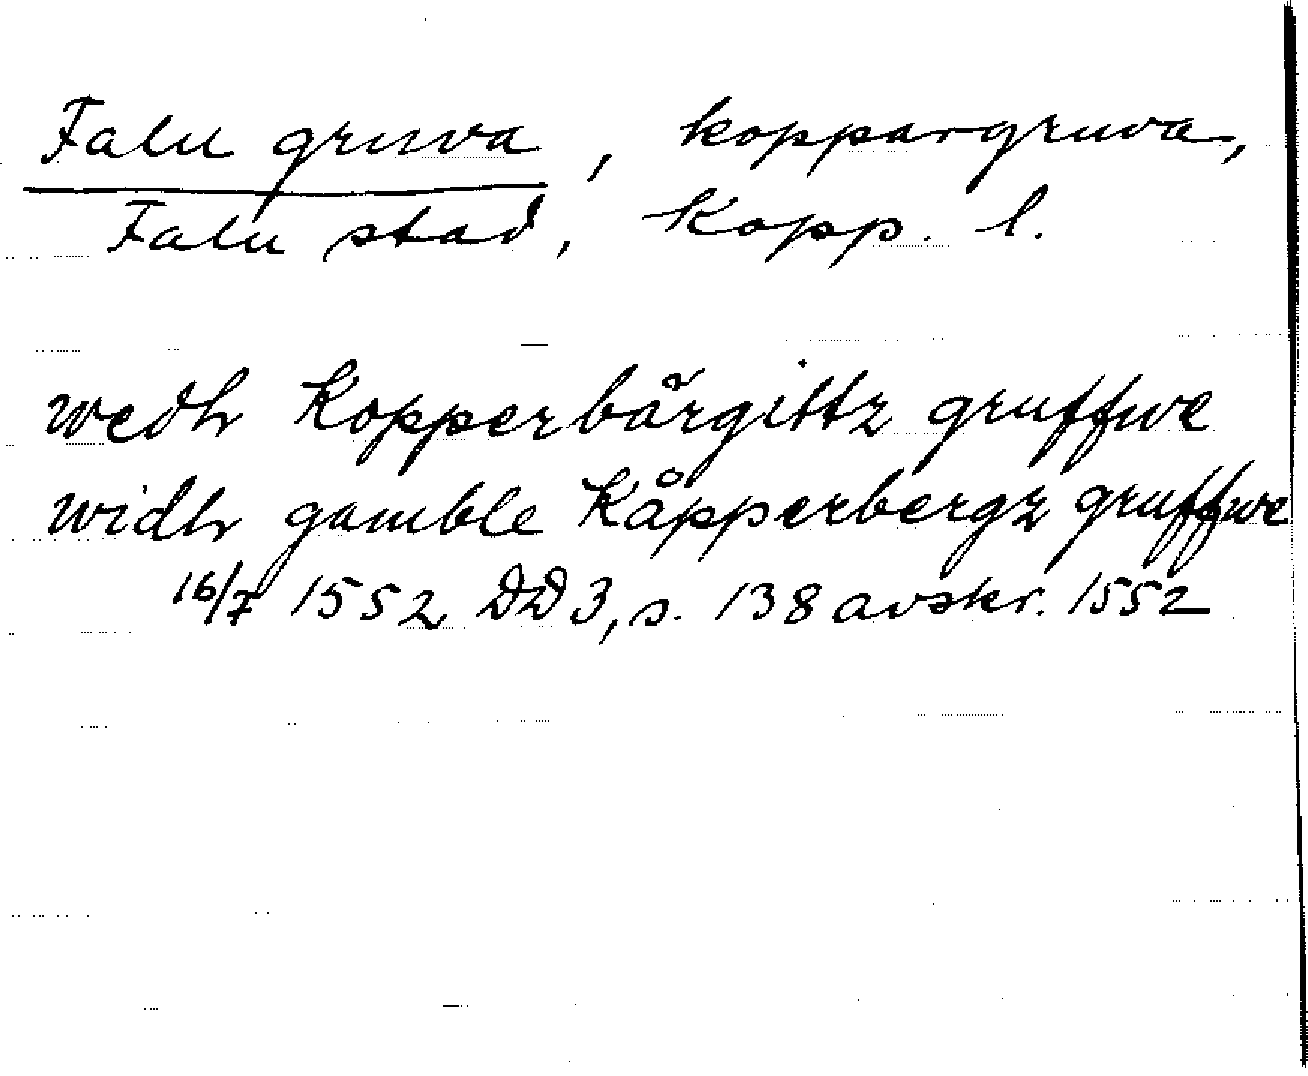 Falu gruva, koppargruva,
Falu stad, Kopp. l.
wedh Kopperbårgittz gruffwe
widh gamble Kåpperbergz gruffwe
16/7 1552 DD 3, s. 138 avskr. 1552